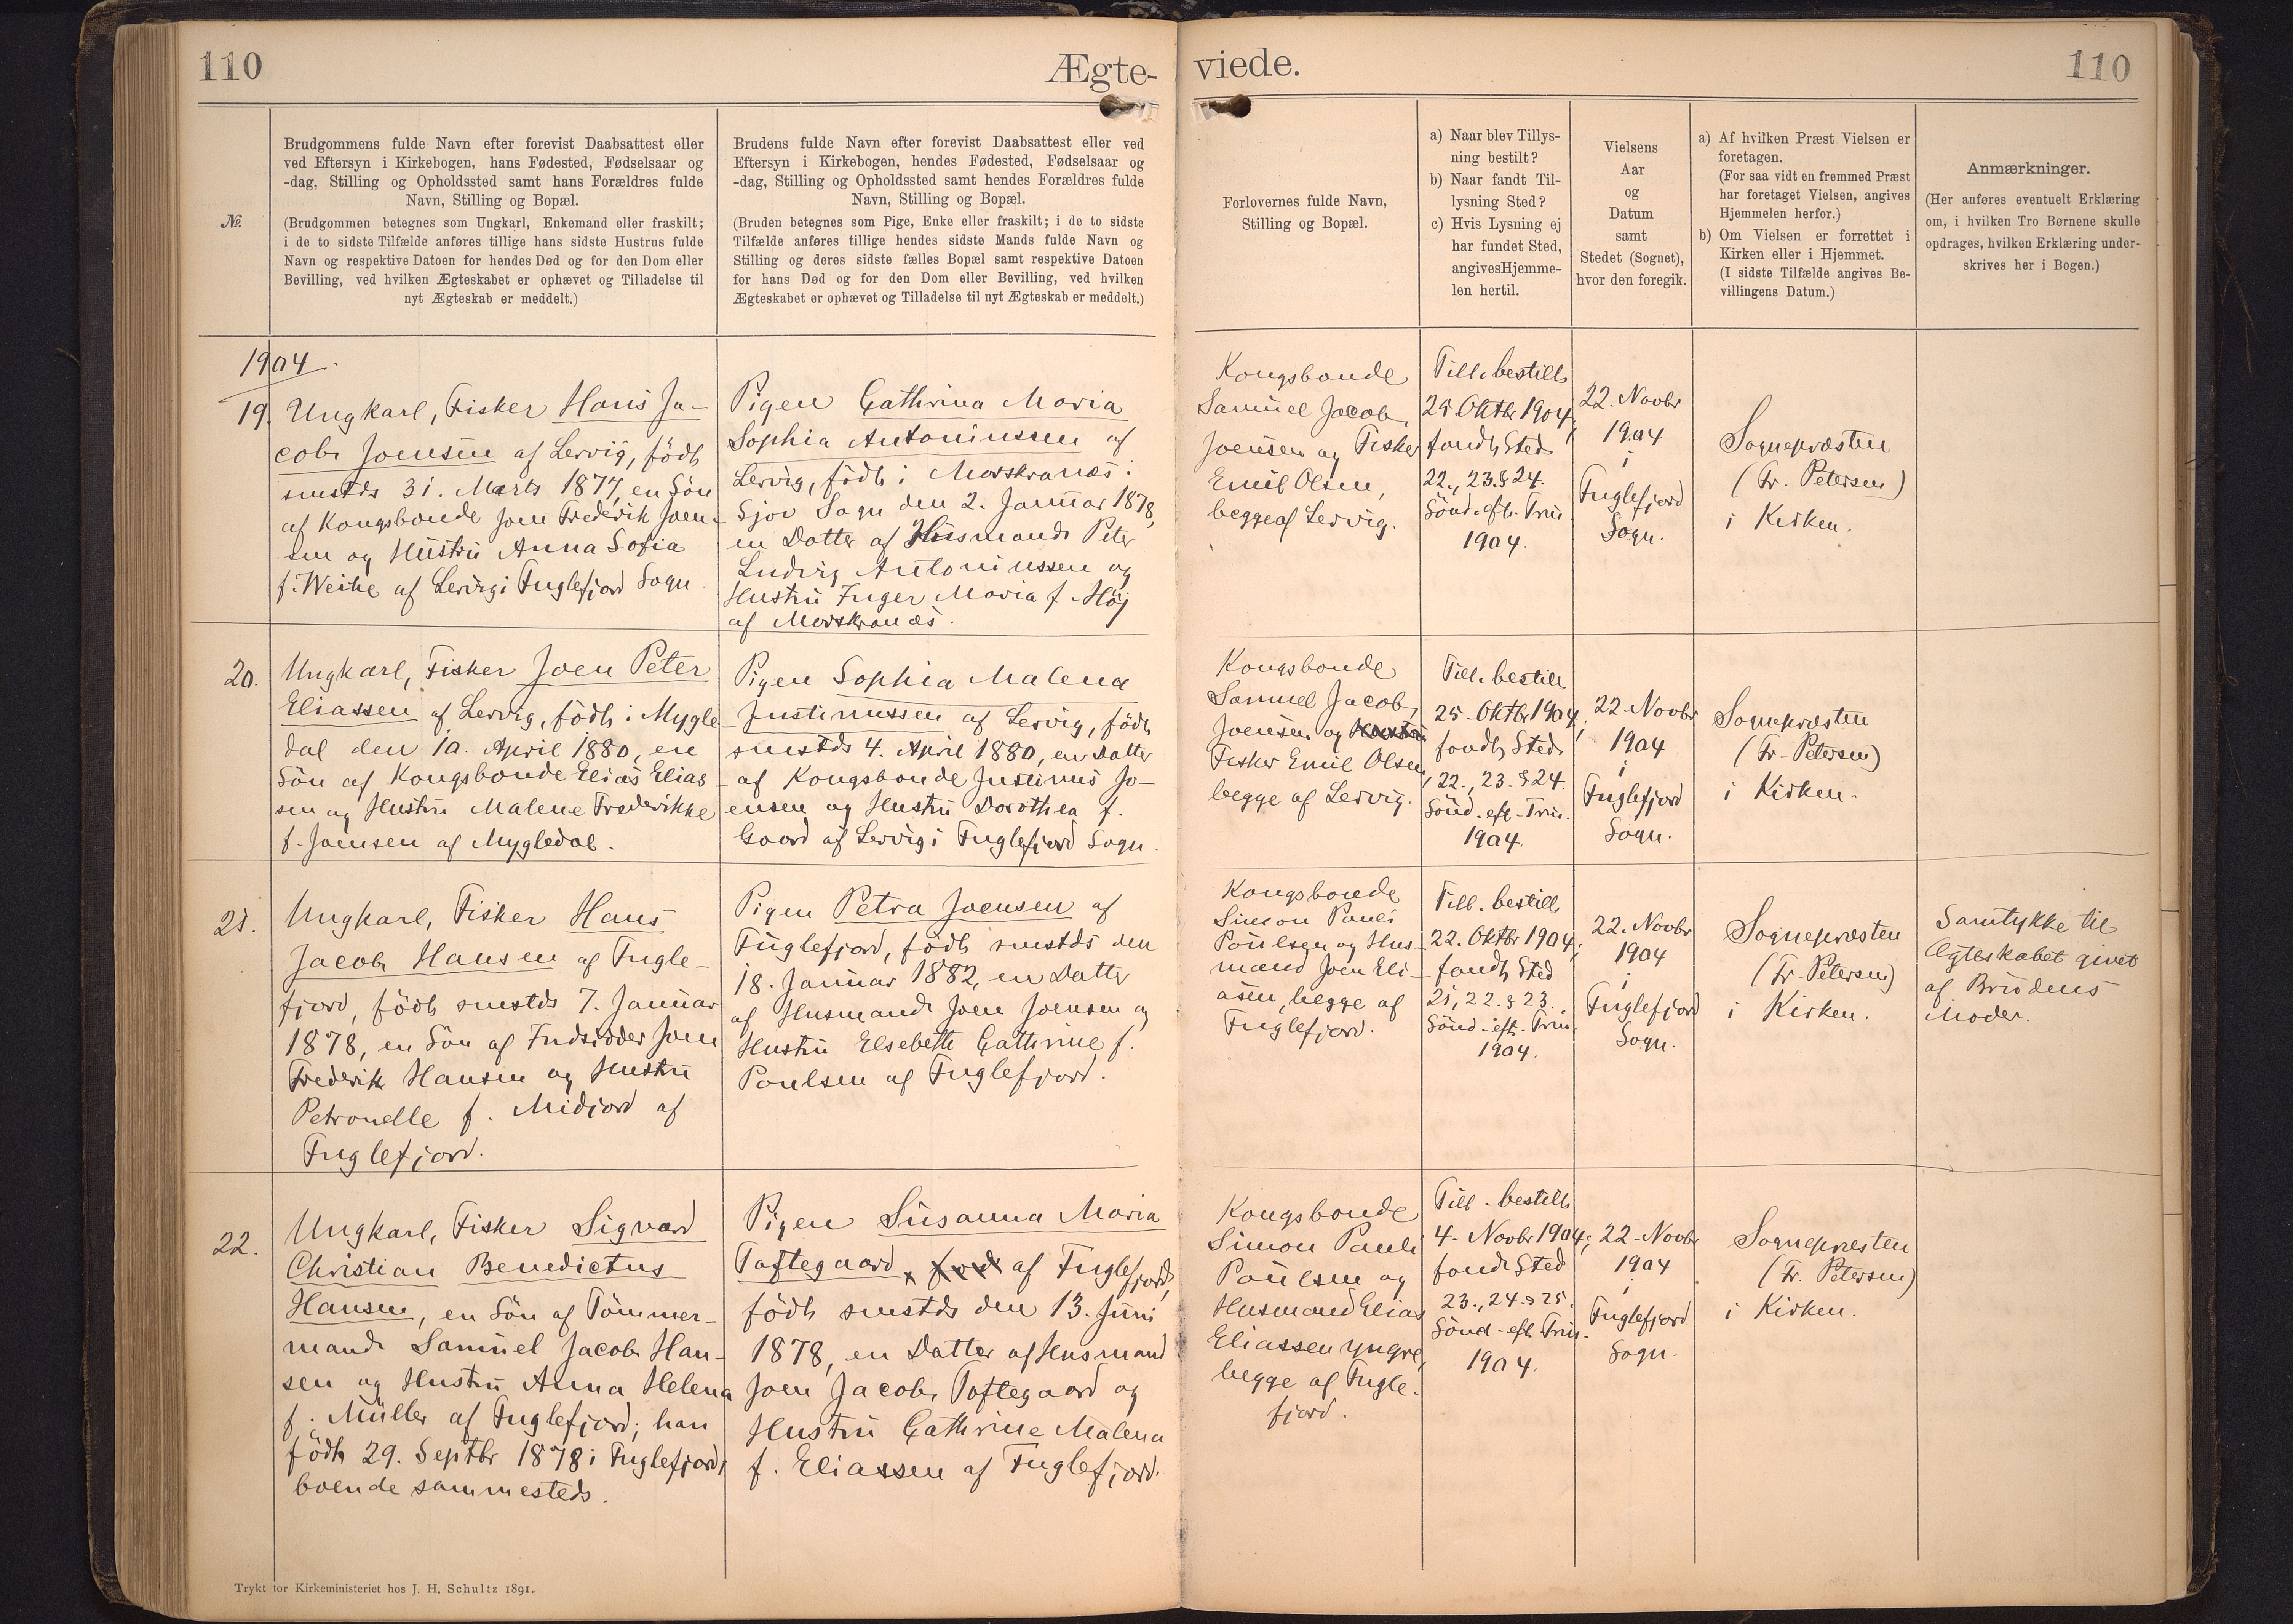 110
Ægte-
viede.
110
№
Brudgommens fulde Navn efter forevist Daabsattest eller
ved Eftersyn i Kirkebogen, hans Fødested, Fødselsaar og
-dag, Stilling og Opholdssted samt hans Forældres fulde
Navn, Stilling og Bopæl.
(Brudgommen betegnes som Ungkarl, Enkemand eller fraskilt;
i de to sidste Tilfælde anføres tillige hans sidste Hustrus fulde
Navn og respektive Datoen for hendes Død og for den Dom eller
Bevilling, ved hvilken Ægteskabet er ophævet og Tilladelse til
nyt Ægteskab er meddelt.)
Brudens fulde Navn efter forevist Daabsattest eller ved
Eftersyn i Kirkebogen, hendes Fødested, Fødselsaar og
-dag, Stilling og Opholdssted samt hendes Forældres fulde
Navn, Stilling og Bopæl.
(Bruden betegnes som Pige, Enke eller fraskilt; i de to sidste
Tilfælde anføres tillige hendes sidste Mands fulde Navn og
Stilling og deres sidste fælles Bopæl samt respektive Datoen
for hans Død og for den Dom eller Bevilling, ved hvilken
Ægteskabet er ophævet og Tilladelse til nyt Ægteskab er meddelt.)
Forlovernes fulde Navn,
Stilling og Bopæl.
a) Naar blev Tillys-
ning bestilt?
b) Naar fandt Til-
lysning Sted?
c) Hvis Lysning ej
har fundet Sted,
angivesHjemme-
len hertil.
Vielsens
Aar
og
Datum
samt
Stedet (Sognet),
hvor den foregik.
a) Af hvilken Præst Vielsen er
foretagen.
(For saa vidt en fremmed Præst
har foretaget Vielsen, angives
Hjemmelen herfor.)
b) Om Vielsen er forrettet i
Kirken eller i Hjemmet.
(I sidste Tilfælde angives Be-
villingens Datum.)
Anmærkninger.
(Her anføres eventuelt Erklæring
om, i hvilken Tro Børnene skulle
opdrages, hvilken Erklæring under-
skrives her i Bogen.)
1904.
19.
Ungkarl, Fisker Hans Ja-
cob Joensen af Lervig, född
smstds 31. Marts 1877, en Sön
af Kongsbonde Joen Frederik Joen-
sen og Hustru Anna Sofia
f. Weihe af Lervig i Fuglefjord Sogn.
Pigen Cathrina Maria
Sophia Antoniussen af
Lervig, född i Morskranæs i
Sjov Sogn den 2. Januar 1878,
en Datter af Husmand Peter
Ludvig Antoniussen og
Hustru Inger Maria f. Höj
af Morskranæs.
Kongsbonde
Samuel Jacob
Joensen og Fisker
Emil Olsen,
begge af Lervig.
Till. bestilt
25. Oktbr 1904;
fandt Sted
22., 23. & 24.
Sönd. eft. Trin.
1904.
22. Novbr
1904
i
Fuglefjord
Sogn.
Sognepræsten
(Fr. Petersen)
i Kirken.
20.
Ungkarl, Fisker Joen Peter
Eliassen af Lervig, född i Mygle-
dal den 10. April 1880, en
Sön af Kongsbonde Elias Elias-
sen og Hustru Malene Frederikke
f. Joensen af Mygledal.
Pigen Sophia Malena
Justinussen af Lervig, född
smstds 4. April 1880, en Datter
af Kongsbonde Justinus Jo-
ensen og Hustru Dorothea f.
Gaard af Lervig i Fuglefjord Sogn.
Kongsbonde
Samuel Jacob
Joensen og
Fisker Emil Olsen,
begge af Lervig.
Till. bestilt
25. Oktbr 1904;
fandt Sted
22., 23. & 24.
Sönd. eft. Trin.
1904.
22. Novbr
1904
i
Fuglefjord
Sogn.
Sognepræsten
(Fr. Petersen)
i Kirken.
21.
Ungkarl, Fisker Hans
Jacob Hansen af Fugle-
fjord, född smstds 7. Januar
1878, en Sön af Indsidder Joen
Frederik Hansen og Hustru
Petronelle f. Midjord af
Fuglefjord.
Pigen Petra Joensen af
Fuglefjord, född smstds den
18. Januar 1882, en Datter
af Husmand Joen Joensen og
Hustru Elsebeth Cathrine f.
Poulsen af Fuglefjord.
Kongsbonde
Simon Pauli
Poulsen og Hus-
mand Joen Eli-
asen, begge af
Fuglefjord.
Till. bestilt
22. Oktbr 1904;
fandt Sted
21, 22. & 23.
Sönd. eft. Trin.
1904.
22. Novbr
1904
i
Fuglefjord
Sogn.
Sognepræsten
(Fr. Petersen)
i Kirken.
Samtykke til
Ægteskabet givet
af Brudens
Moder.
22.
Ungkarl, Fisker Sigvard
Christian Benedictus
Hansen, en Sön af Tömmer-
mand Samuel Jacob Han-
sen og Hustru Anna Helena
f. Müller af Fuglefjord; han
född 29. Septbr 1878 i Fuglefjord,
boende sammesteds.
Pigen Susanna Maria
Toftegaard, af Fuglefjord,
född smstds den 13. Juni
1878, en Datter af Husmand
Joen Jacob Toftegaard og
Hustru Cathrine Malena
f. Eliassen af Fuglefjord.
Kongsbonde
Simon Pauli
Poulsen og
Husmand Elias
Eliassen yngre,
begge af Fugle-
fjord.
Till. bestilt
4. Novbr 1904;
fandt Sted
23., 24. & 25.
Sönd. eft. Trin.
1904.
22. Novbr
1904
i
Fuglefjord
Sogn.
Sognepræsten
(Fr. Petersen)
i Kirken.
Trykt for Kirkeministeriet hos J. H. Schultz 1891.